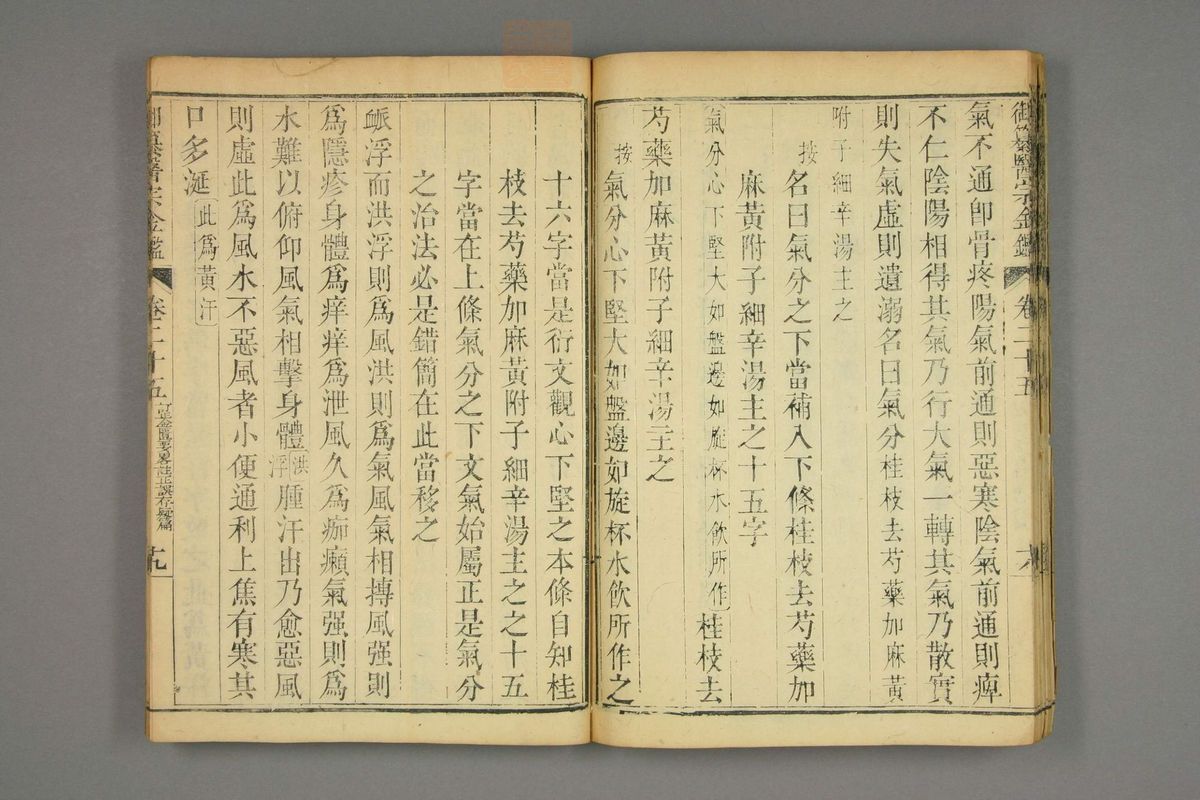 御纂醫宗金鑑 卷二十五
氣不通即骨疼陽氣前通則惡寒陰氣前通則痺
不仁陰陽相得其氣乃行大氣一轉其氣乃散實
則失氣虛則遺溺名曰氣分桂枝去芍藥加麻黃
附子細辛湯主之
按名曰氣分之下當補入下條桂枝去芍藥加
麻黃附子細辛湯主之十五字
氣分心下堅大如盤邊如旋杯水飲所作桂枝去
芍藥加麻黃附子細辛湯主之
按氣分心下堅大如盤邊如旋杯水飲所作之
十六字當是衍文觀心下堅之本條自知桂
枝去芍藥加麻黃附子細辛湯主之之十五
字當在上條氣分之下文氣始屬正是氣分
之治法必是錯簡在此當移之
脈浮而洪浮則為風洪則為氣風氣相搏風强則
為隱疹身體為痒痒為泄風久為痂癩氣强則為
水難以俯仰風氣相擊身體洪浮腫汗出乃愈惡風
則虛此為風水不惡風者小便通利上焦有寒其
口多涎此為黃汗
御纂醫宗金鑑 卷二十五 訂正金匱要畧註正誤存疑篇 十九